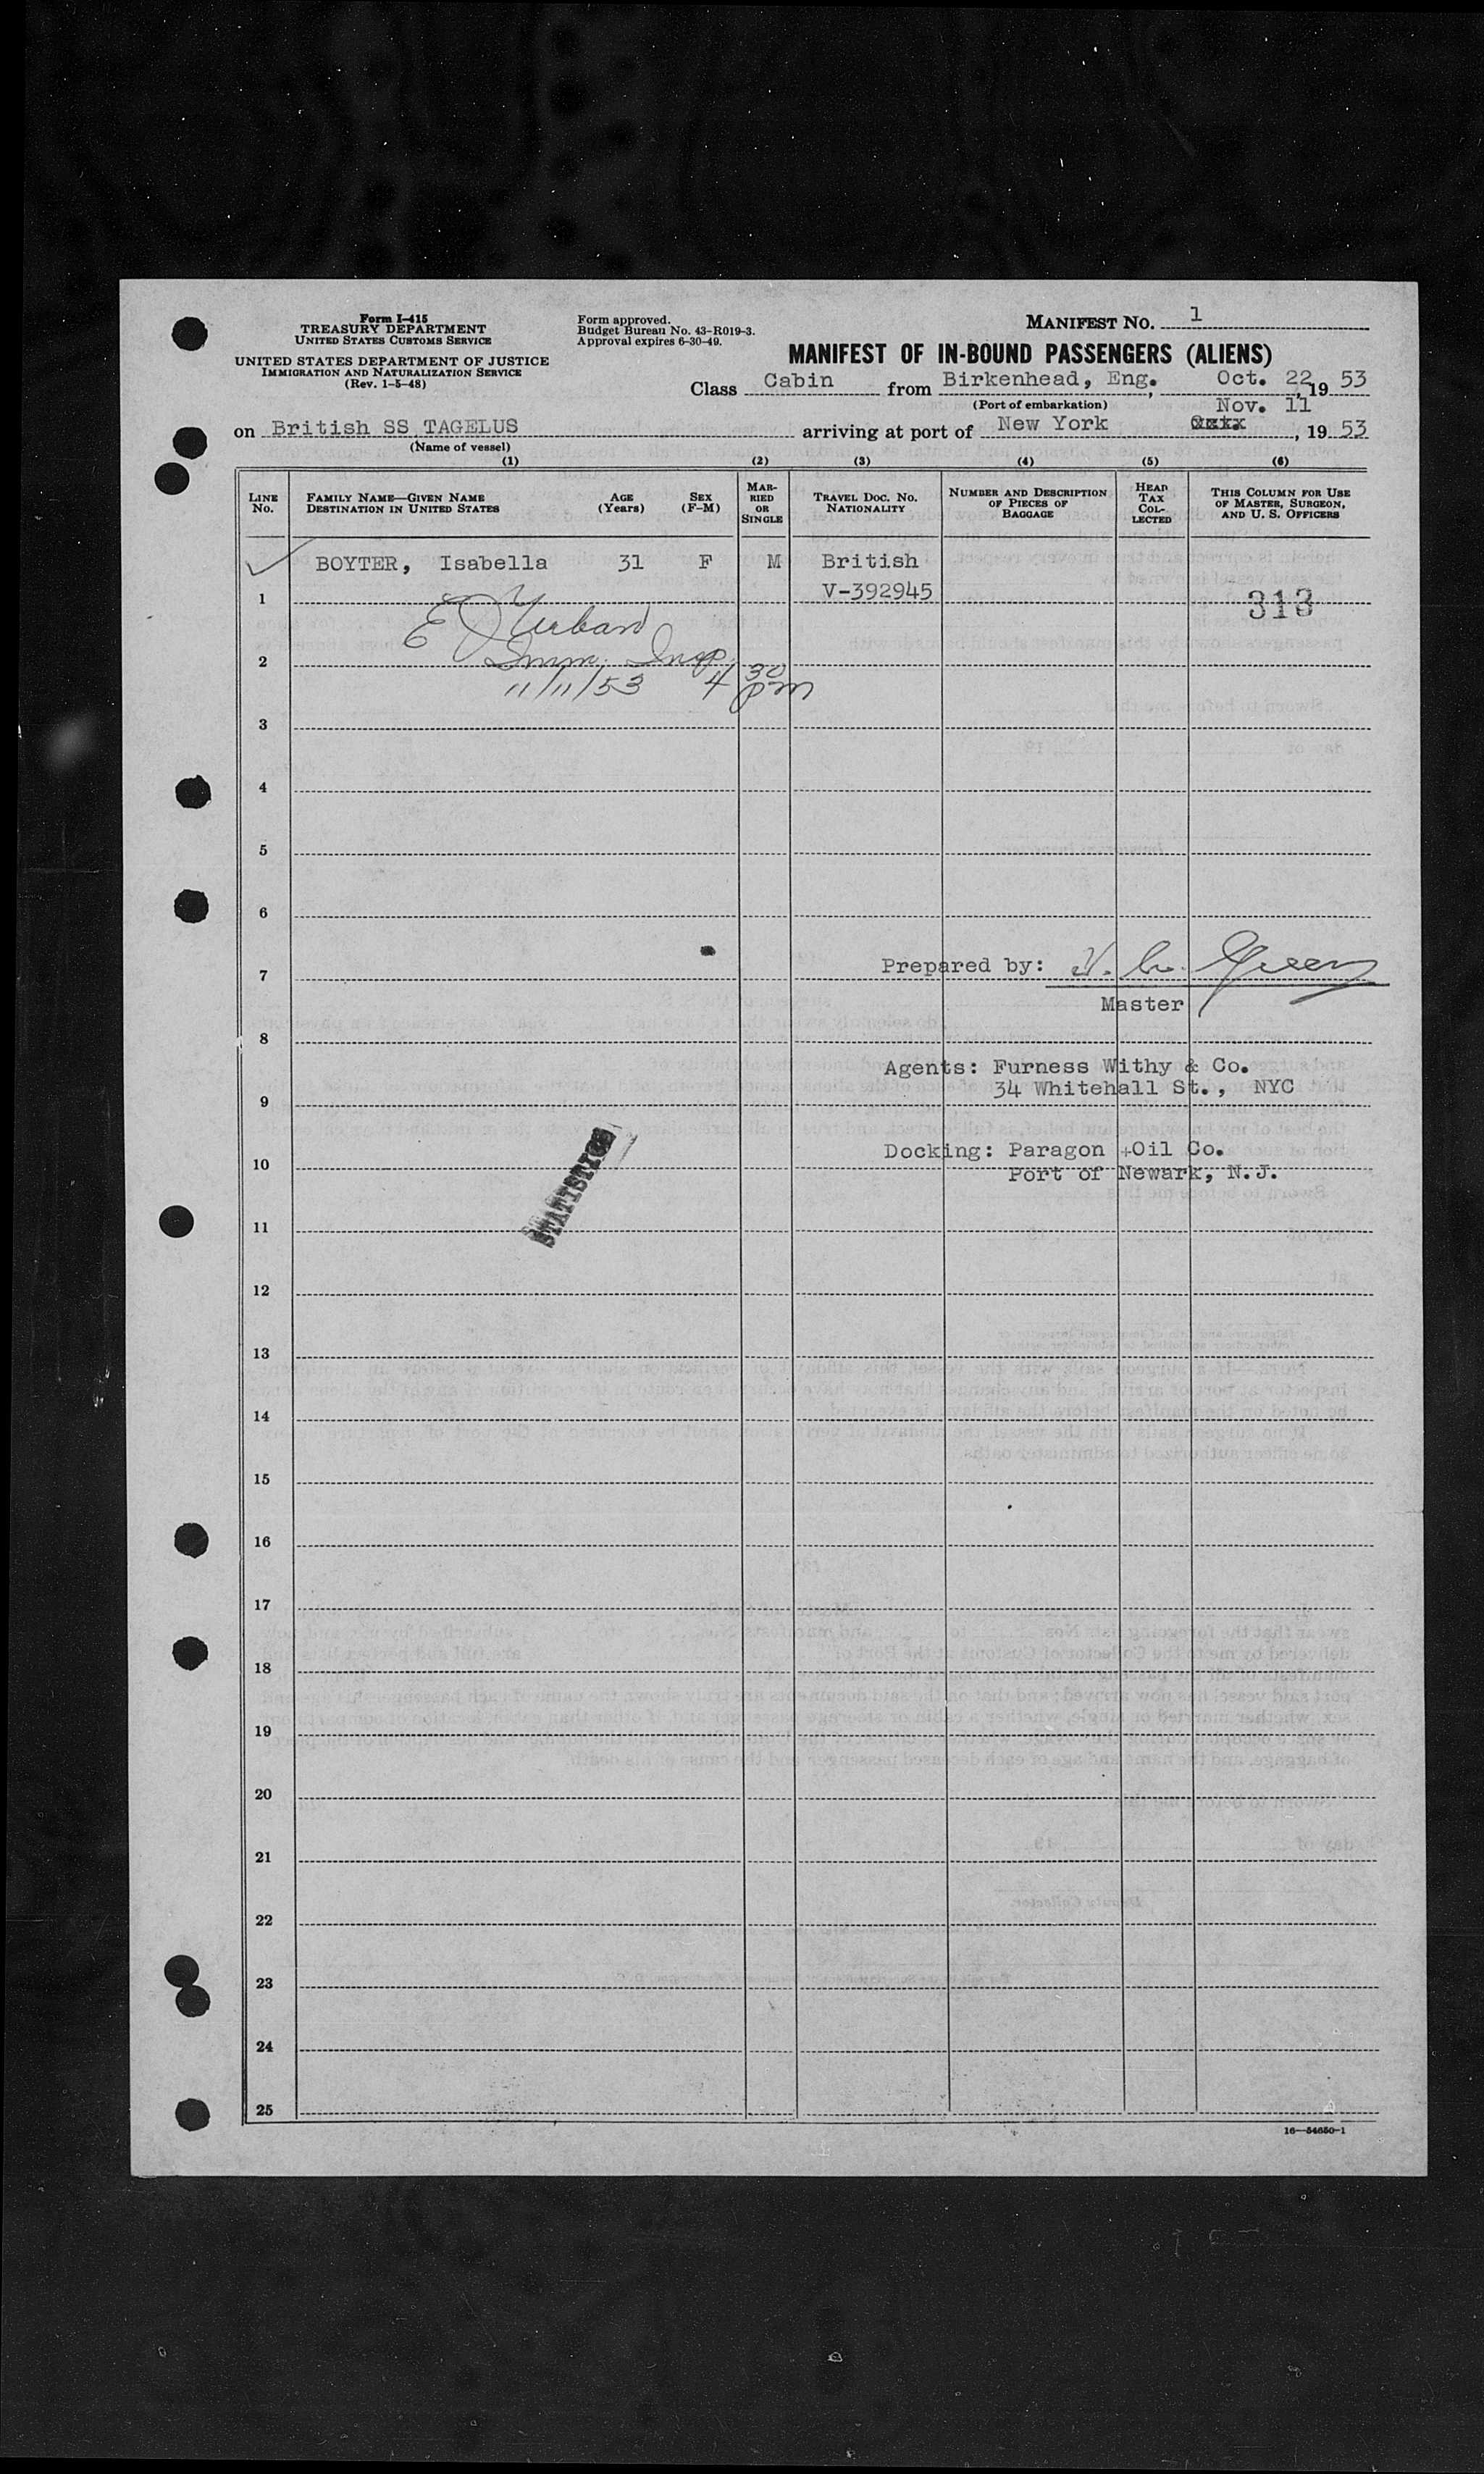 Form I-415
TREASURY DEPARTMENT
UNITED STATES CUSTOMS SERVICE
UNITED STATES DEPARTMENT OF JUSTICE
IMMIGRATION AND NATURALIZATION SERVICE
(Rev. 1-5-48)
Form approved.
Budget Bureau No. 43-R019-3.
Approval expires 6-30-49.
MANIFEST No. 1
MANIFEST OF IN-BOUND PASSENGERS (ALIENS)
Class Cabin from Birkenhead, Eng., Oct. 22, 19 53
(Port of embarkation)
Nov. 11
on British SS TAGELUS arriving at port of New York, 19 53
(Name of vessel)
(1) (2) (3) (4) (5) (6)
LINE No.
FAMILY NAME—GIVEN NAME
DESTINATION IN UNITED STATES
AGE (Years)
SEX (F-M)
MARRIED OR SINGLE
TRAVEL DOC. No.
NATIONALITY
NUMBER AND DESCRIPTION OF PIECES OF BAGGAGE
HEAD TAX COLLECTED
THIS COLUMN FOR USE OF MASTER, SURGEON, AND U. S. OFFICERS
BOYTER, Isabella 31 F M British
1 V-392945 313
E J Urban
2 Imm. Insp.
11/11/53 4 30 pm
3
4
5
6
7 Prepared by: Green
Master
8
Agents: Furness Withy & Co.
34 Whitehall St., NYC
9
Docking: Paragon Oil Co.
10 Port of Newark, N.J.
STATISTICS
11
12
13
14
15
16
17
18
19
20
21
22
23
24
25
16—54650-1